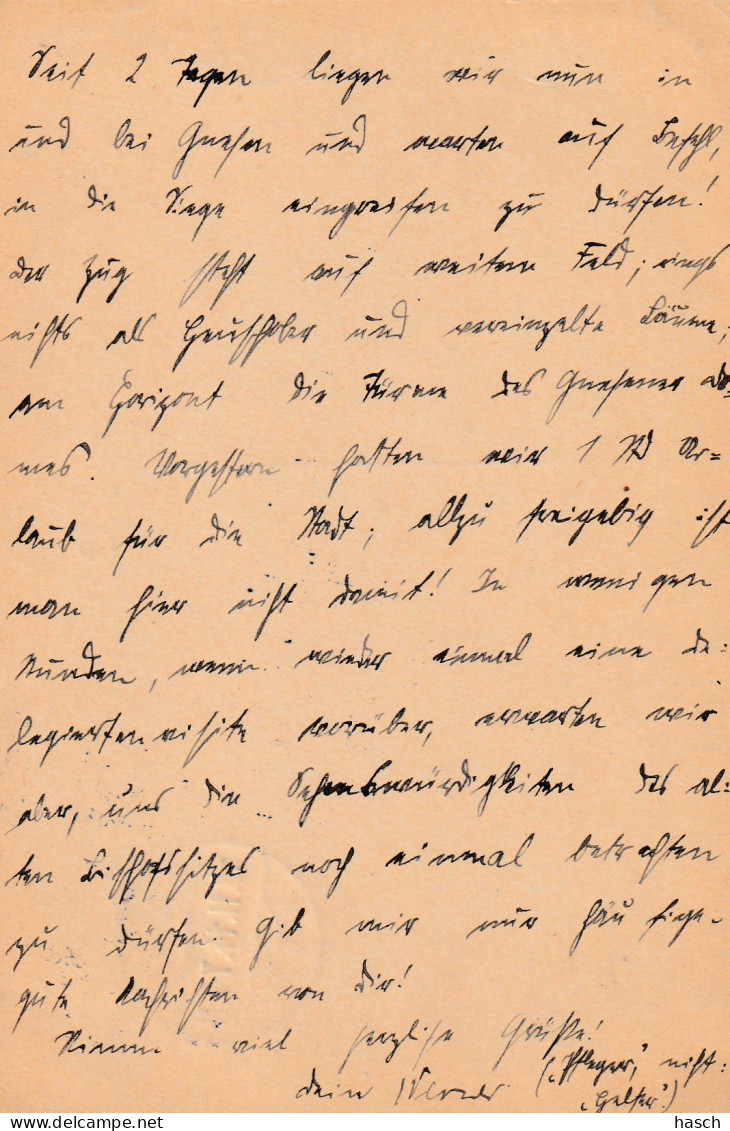 Seit 2 Tagen liegen wir nun in
und bei Gnesen und warten auf Befehl,
in die Siege eingreifen zu dürfen!
Der Zug steht auf weitem Feld; rings
nichts als Heuschober und vereinzelte Bäume;
am Horizont die Türme des Gnesener Do-
mes. Vorgestern hatten wir 1 Ur=
laub für die Stadt; allzu freigebig ist
man hier nicht damit! In wenigen
Stunden, wenn wieder einmal eine De:
legiertenvisite vorüber, erwarten wir
aber, uns die Sehenswürdigkeiten des al:
ten Bischofssitzes noch einmal betrachten
zu dürfen. Gib mir nur häufige-
gute Nachrichten von Dir!
Nimm viel herzliche Grüße!
Dein Werner („Pfleger," nicht:
„Helfer")
hasch